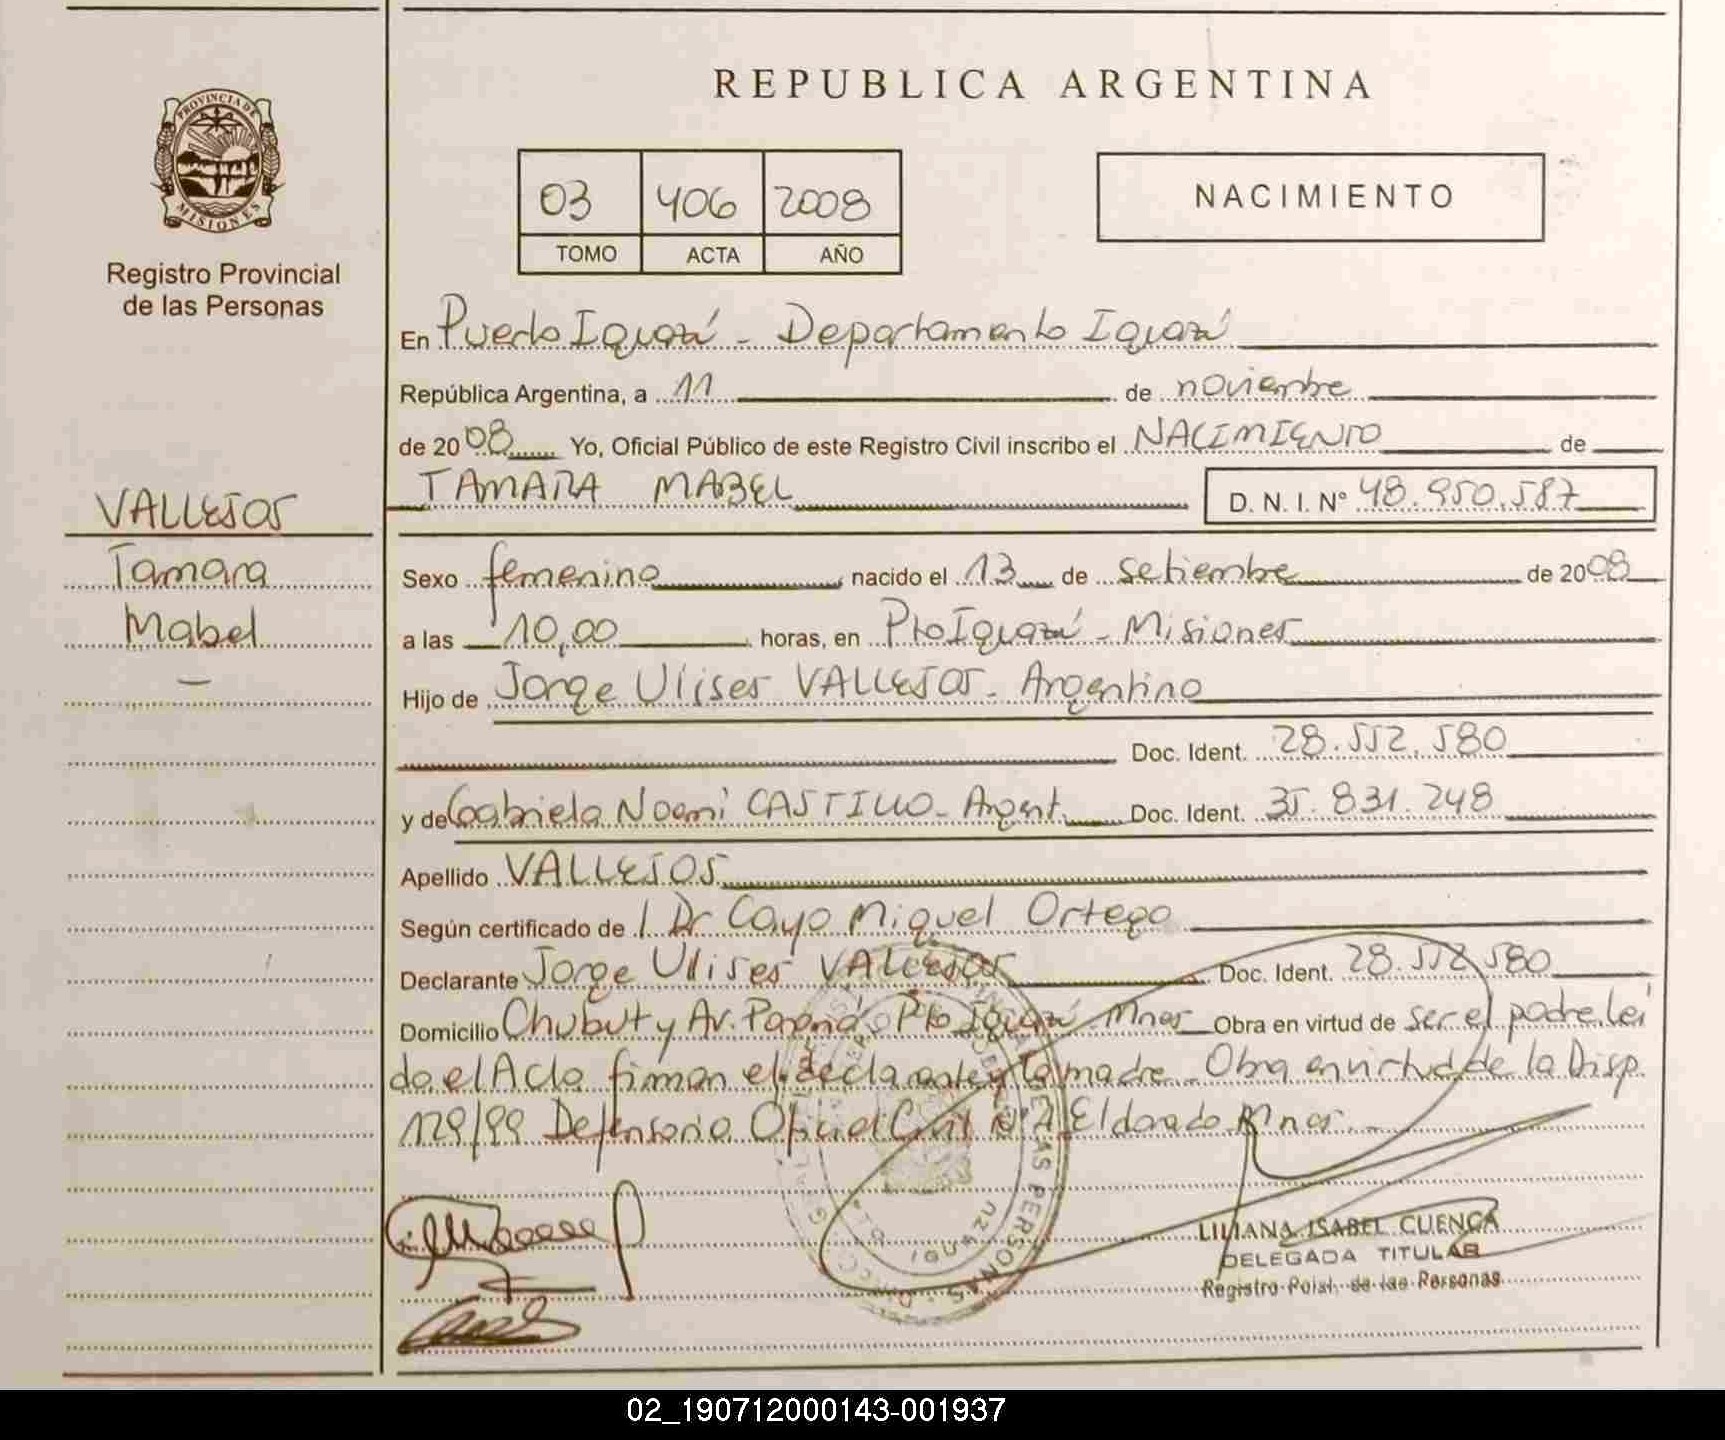 REPUBLICA ARGENTINA
PROVINCIA DE
MISIONES
Registro Provincial
de las Personas
03 406 2008
TOMO ACTA AÑO
NACIMIENTO
En Puerto Iguazú - Departamento Iguazú
República Argentina, a 11 de noviembre
de 2008 Yo, Oficial Público de este Registro Civil inscribo el NACIMIENTO de
TAMARA MABEL D. N. I. Nº 48.950.587
VALLEJOS
Tamara
Mabel
Sexo femenino nacido el 13 de setiembre de 2008
a las 10,00 horas, en Pto Iguazú - Misiones
Hijo de Jorge Ulises VALLEJOS - Argentino
Doc. Ident. 28.552.580
y de Gabriela Noemi CASTILLO - Argent. Doc. Ident. 35.831.248
Apellido VALLEJOS
Según certificado de Dr Cayo Miguel Ortega
Declarante Jorge Ulises VALLEJOS Doc. Ident. 28.552.580
Domicilio Chubut y Av. Pto Iguazú Mnes Obra en virtud de ser el padre. Leí
do el Acta firman el declarante y la madre - Obra en virtud de la Disp.
129/99 Defensoria Oficial Civil Nº Eldorado Mnes. -
LILIANA ISABEL CUENCA
DELEGADA TITULAR
Registro Pcial. de las Personas
02_190712000143-001937